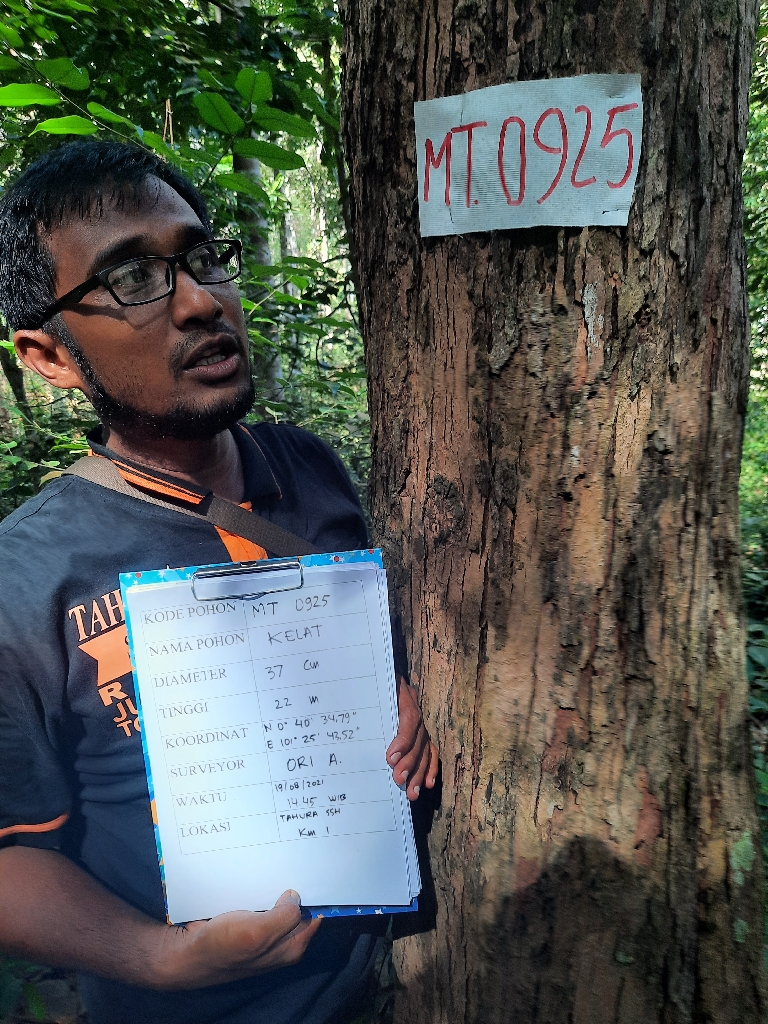 MT.0925
KODE POHON MT 0925
NAMA POHON KELAT
DIAMETER 37 Cm
TINGGI 22 m
KOORDINAT N 0° 40' 34.79"
E 101° 25' 43.52"
SURVEYOR ORI A.
WAKTU 19/08/2021
14.45 WIB
LOKASI TAHURA SSH
Km 1
TAH